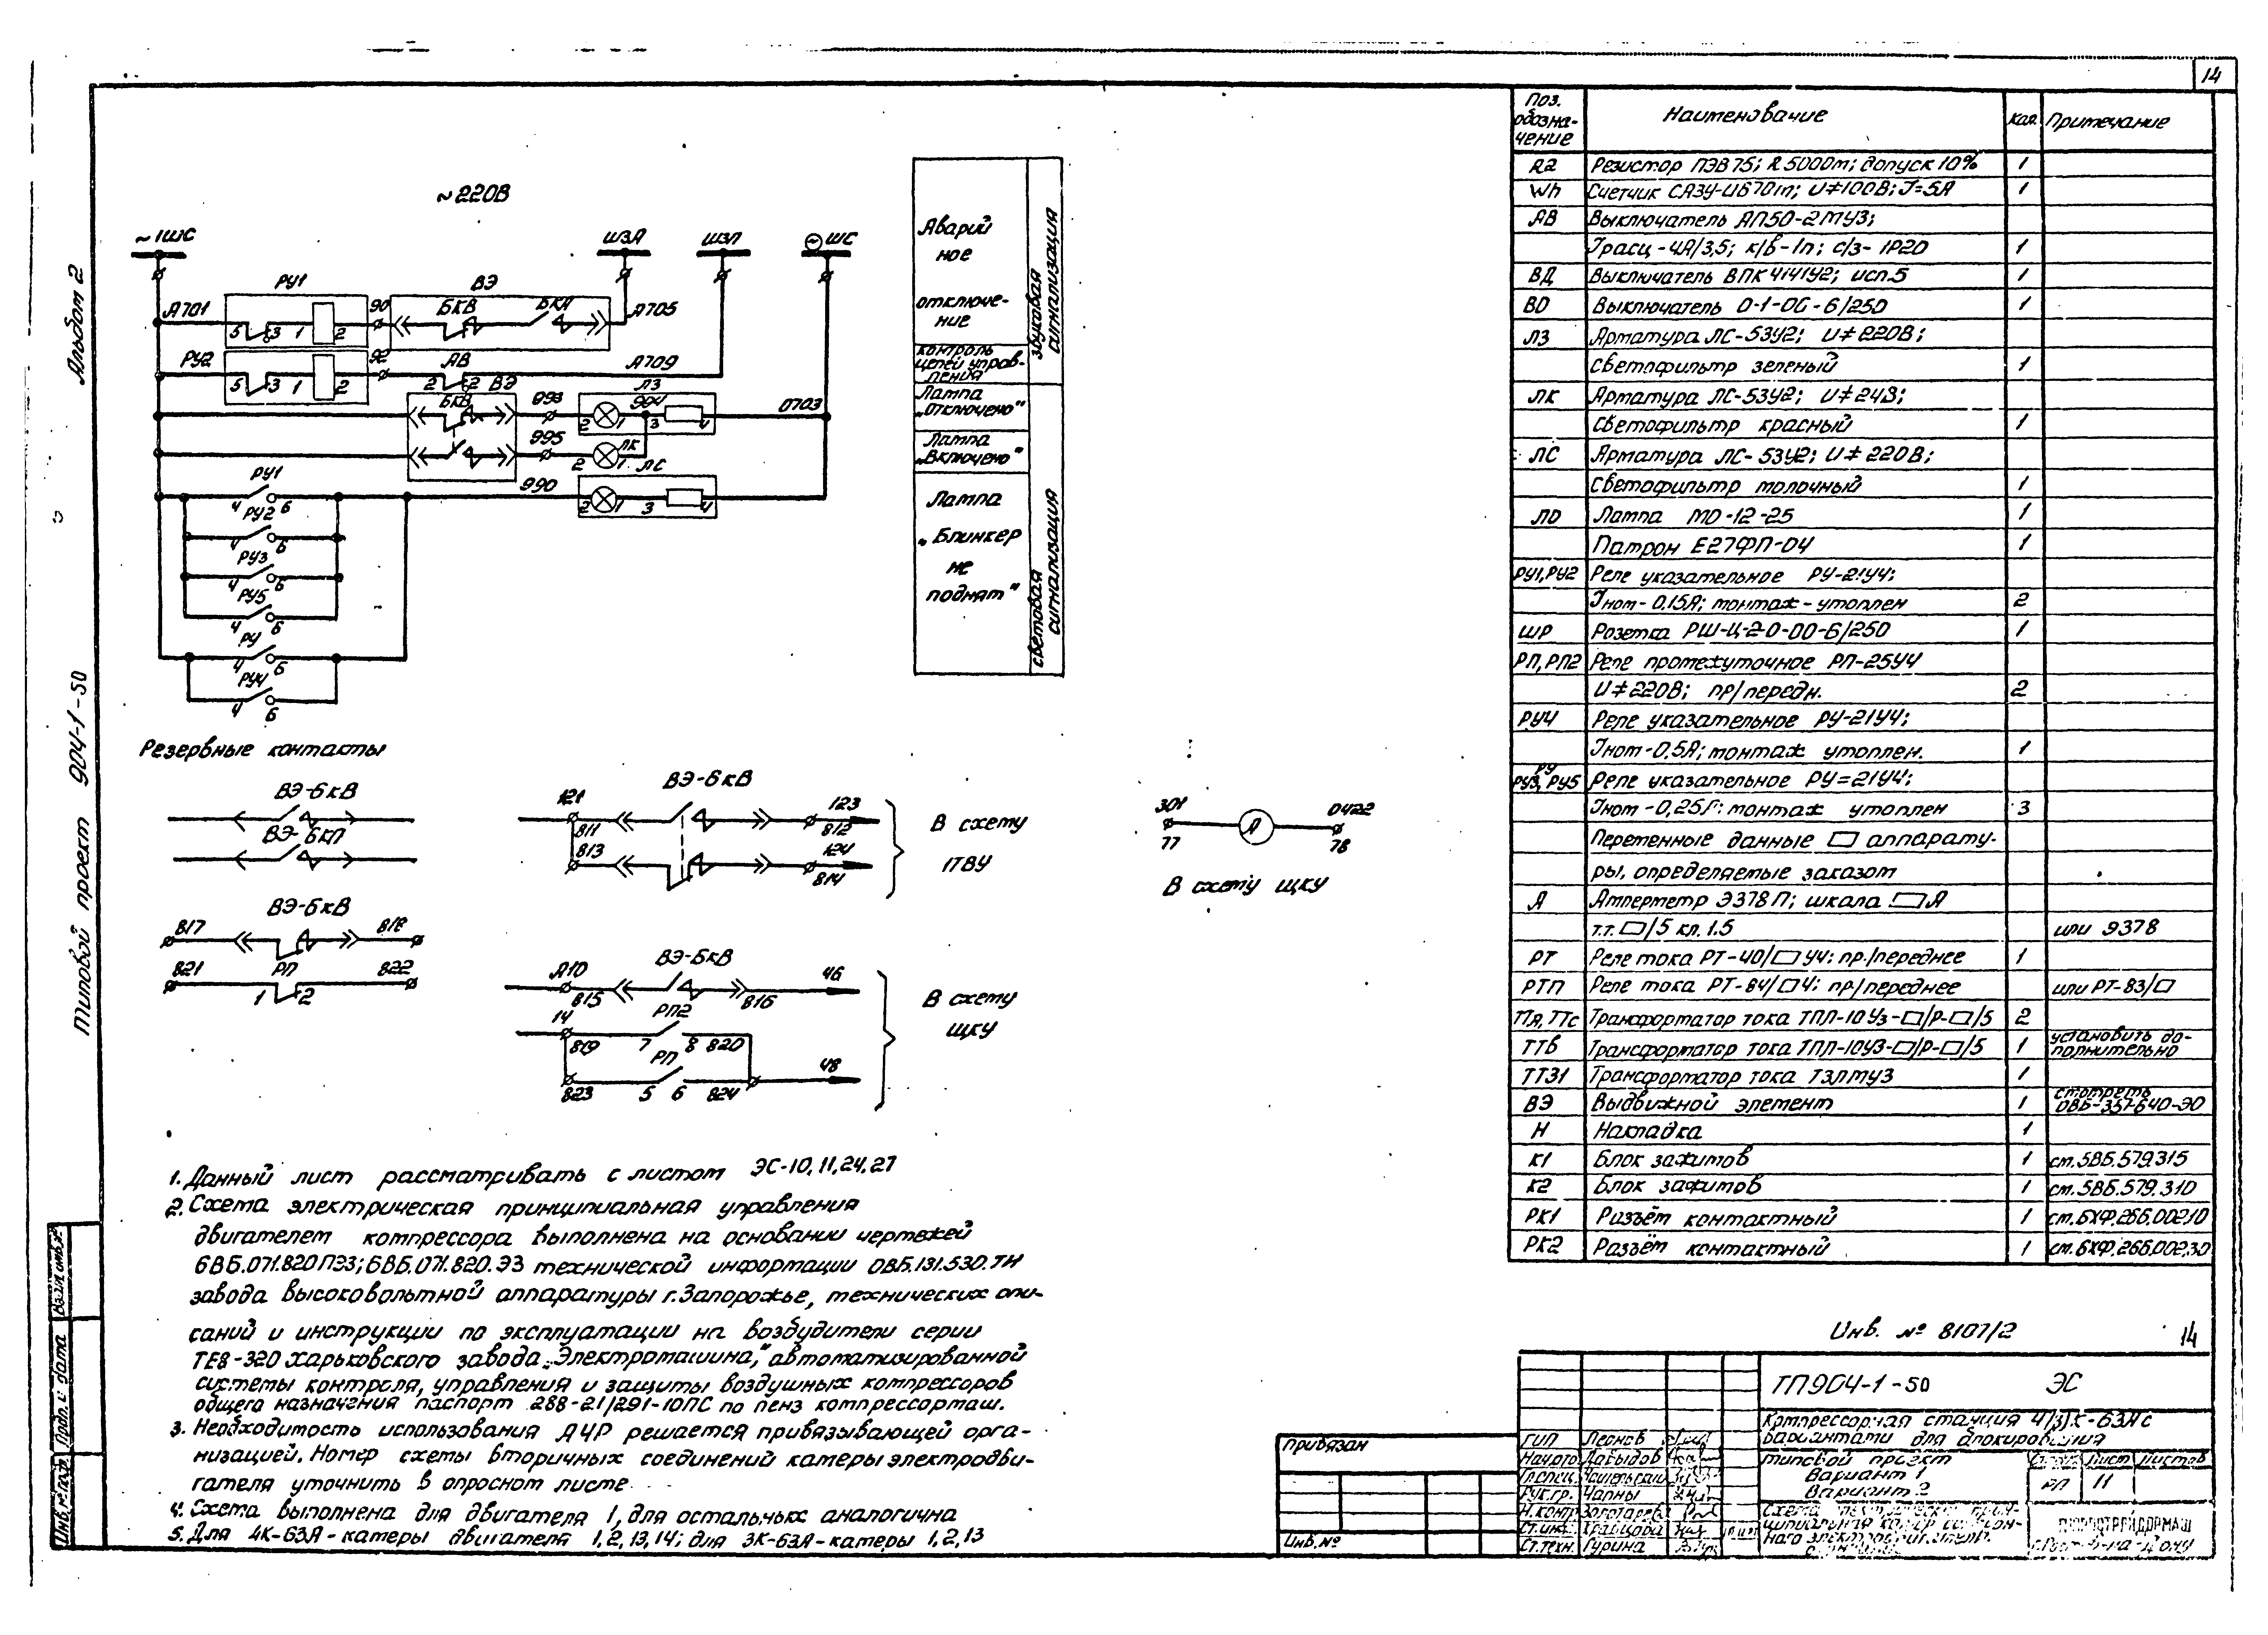 14
Альбом 2
Типовой проект 904-1-50
Взам. инв. №
Подп. и дата
Инв. № подл.
~220В
~1ШС
ШЗА
ШЗП
~ ШС
РУ1
ВЭ
А701
90
БКВ
БКА
А705
5 3 1 2
РУ2
92
АВ
А709
5 3 1 2
2 2
ВЭ
ЛЗ
БКВ
993
994
0703
2 1 3 4
995
ЛК
2 1
ЛС
РУ1
990
4 6
2 1 3 4
РУ2
4 6
РУ3
4 6
РУ5
4 6
РУ
4 6
РУ4
4 6
Аварий
ное
отключе-
ние
контроль
цепей управ-
ления
Лампа
„Отключено"
Лампа
„Включено"
Лампа
„Блинкер
не
поднят"
звуковая
сигнализация
световая
сигнализация
Резервные контакты
ВЭ-БКВ
ВЭ-БКП
ВЭ-БКВ
817 818
821 РП 822
1 2
ВЭ-БКВ
121 123
811 812
813 124
814
В схему
1ТВУ
ВЭ-БКВ
А10 46
815 816
14 РП2
819 7 8 820
РП 48
823 5 6 824
В схему
ЩКУ
301 А 0422
77 78
В схему ЩКУ
1. Данный лист рассматривать с листом ЭС-10,11,24,27
2. Схема электрическая принципиальная управления
двигателем компрессора выполнена на основании чертежей
6ВБ.071.820ПЭ3; 6ВБ.071.820.Э3 технической информации 0ВБ.131.530.ТИ
завода высоковольтной аппаратуры г.Запорожье, технических опи-
саний и инструкции по эксплуатации на возбудители серии
ТЕ8-320 Харьковского завода „Электромашина," автоматизированной
системы контроля, управления и защиты воздушных компрессоров
общего назначения паспорт 288-21/291-10ПС по пенз компрессормаш.
3. Необходимость использования АЧР решается привязывающей орга-
низацией. Номер схемы вторичных соединений камеры электродви-
гателя уточнить в опросном листе
4. Схема выполнена для двигателя 1, для остальных аналогична
5. Для 4К-63А - камеры двигателя 1,2,13,14; для 3К-63А - камеры 1,2,13
Поз. обозна-чение Наименование Кол. Примечание
R2 Резистор ПЭВ75; R 500Ом; допуск 10% 1
Wh Счетчик СА3У-И670м; U≠100В; I=5А 1
АВ Выключатель АП50-2МУ3;
Iрасц-4А/3,5; к/в-1п; с/з-IP20 1
ВД Выключатель ВПК4141У2; исп.5 1
ВО Выключатель 0-1-ОС-6/250 1
ЛЗ Арматура ЛС-53У2; U≠220В;
Светофильтр зеленый 1
ЛК Арматура ЛС-53У2; U≠24В;
Светофильтр красный 1
ЛС Арматура ЛС-53У2; U≠220В;
Светофильтр молочный 1
ЛО Лампа МО-12-25 1
Патрон Е27ФП-04 1
РУ1,РУ2 Реле указательное РУ-21У4;
Iном-0,15А; монтаж-утоплен 2
ШР Розетка РШ-Ц-2-0-00-6/250 1
РП,РП2 Реле промежуточное РП-25У4
U≠220В; пр/передн. 2
РУ4 Реле указательное РУ-21У4;
Iном-0,5А; монтаж утоплен. 1
РУ
РУ3, РУ5 Реле указательное РУ=21У4;
Iном-0,25А: монтаж утоплен 3
Переменные данные ▭ аппарату-
ры, определяемые заказом
А Амперметр Э378П; шкала ▭ А
т.т. ▭/5 кл. 1.5 или Э378
РТ Реле тока РТ-40/▭ У4: пр./переднее 1
РТП Реле тока РТ-84/▭4; пр/переднее или РТ-83/▭
ТТА, ТТс Трансформатор тока ТПЛ-10У3-▭/Р-▭/5 2
ТТВ Трансформатор тока ТПЛ-10У3-▭/Р-▭/5 1 установить до-полнительно
ТТЗ1 Трансформатор тока ТЗЛМУ3 1
ВЭ Выдвижной элемент 1 смотреть 0ВБ-357-640-Э0
Н Накладка 1
К1 Блок зажимов 1 см.5ВБ.579.315
К2 Блок зажимов 1 см.5ВБ.579.310
РК1 Разъём контактный 1 см.6ХФ.266.002.10
РК2 Разъём контактный 1 см.6ХФ.266.002.30
Инв. № 8107/2
14
ТП904-1-50 ЭС
Компрессорная станция 4/3/К-63А с
вариантами для блокирования
Типовой проект
Вариант 1
Вариант 2
Лист Листов
РП 11
ГИП Леонов
Нач.отд Давыдов
Гл.спец.
Рук.гр. Чапны
Н.контр Золотарев
Ст.инж. Кравцова
Ст.техн. Гурина
Схема
г.Ростов-на-Дону
Привязан
Инв.№